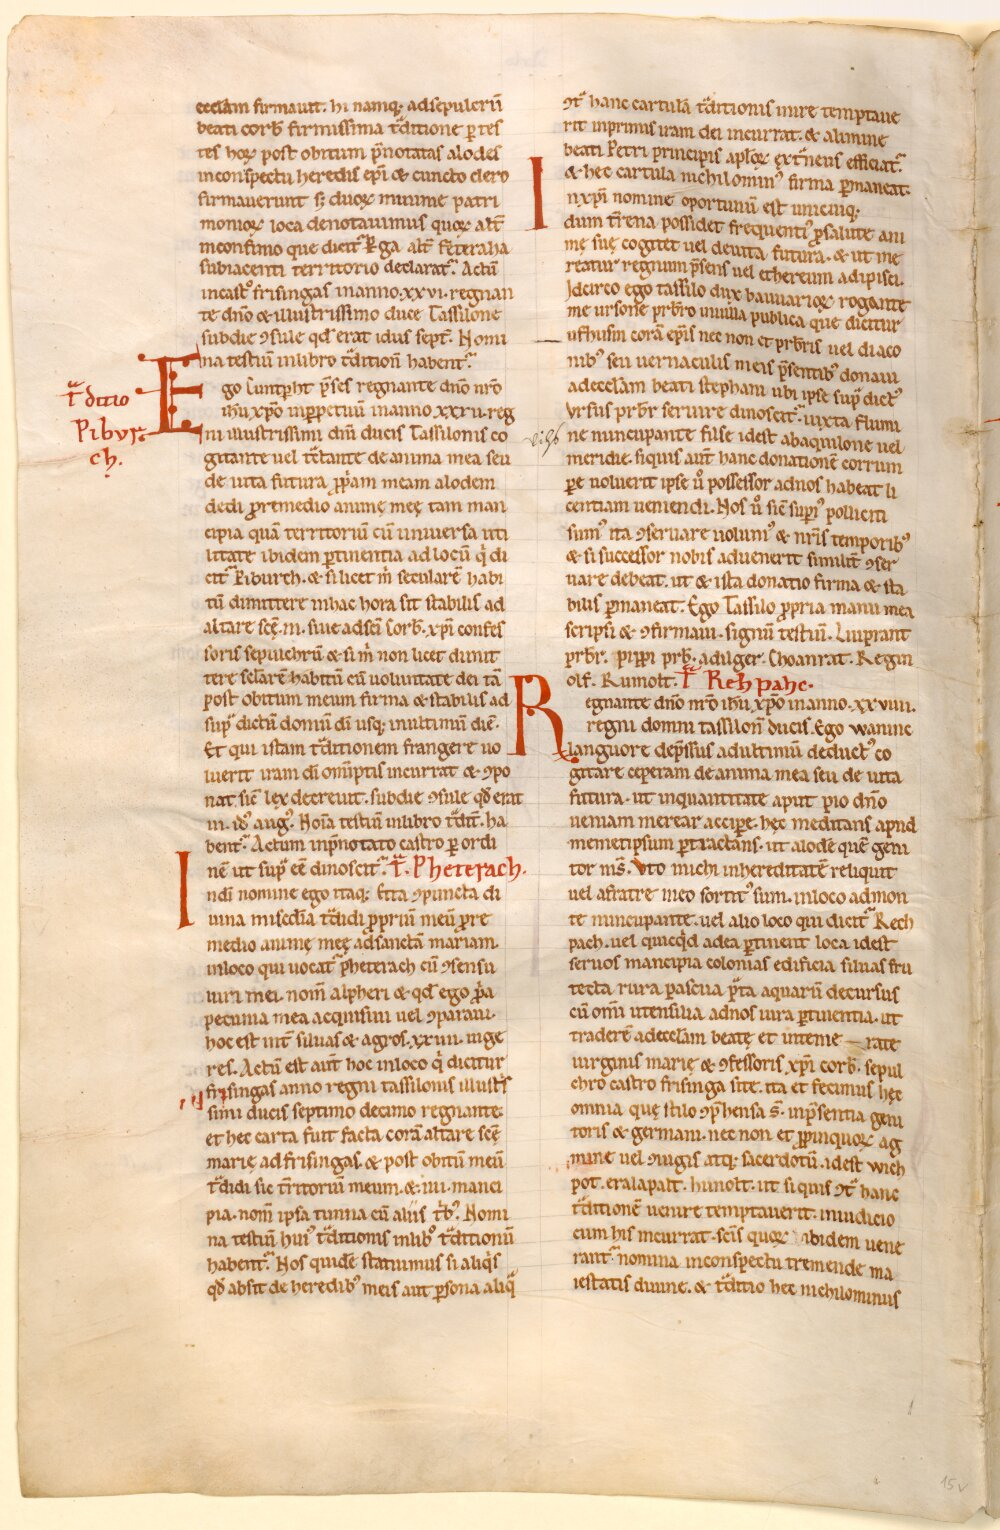 ecclam firmauit. hi namq; ad sepulcrū
beati corb̄ firmissima t̄ditione ꝑtes
tes hoꝝ post obitum p̄notatas alodes
in conspectu heredis ep̄i & cuncto clero
firmauerunt sꝫ duoꝝ minime patri
monioꝝ loca denotauimus quoꝝ alt̄
in confinio que dicit᷑ Ꝑga alt̄ feteraha
subiacenti territorio declarat᷑. Actū
in castꝰ frisingas in anno. xxvi. regnan
te dn̄o & illustrissimo duce Tassilone
sub die ꝯsule qd̄ erat idus sept̄. Nomi
na testiū in libro t̄dition̄ habent᷑.
Ego Cuntꝑht p̄ses regnante dn̄o nr̄o
ih̄u xp̄o in perpetuū in anno xxvii. reg
ni illustrissimi dn̄i ducis Tassilonis co
gitante uel t̄ctante de anima mea seu
de uita futura ꝓpam meam alodem
dedi ꝓ remedio animę meę tam man
cipia quā territoriū cū uniuersa uti
litate ibidem ꝑtinentia ad locū q̇ di
cit᷑ Piburch. & si licet m̄ secularē habi
tū dimittere in hac hora sit stabilis ad
altare scē. m. siue ad sc̄i corb̄. xp̄i confes
soris sepulchrū & si m̄ non licet dimit
tere sclarē habitū cū uoluntate dei tā
post obitum meum firma & stabilis ad
sup̄ dictū domū dī usq; in ultimū diē.
Et qui istam t̄ditionem frangere uo
luerit iram dī om̄ptis incurrat & ꝯpo
nat sic̄ lex decreuit. sub die ꝯsule qd̄ erat
iii. idꝰ augꝰ. Noīa testiū in libro t̄dit̄. ha
bent᷑. Actum in p̄notato castro ꝑ ordi
nē ut sup̄ eē dinoscit᷑. T̄. Pheterach.
In dī nomine ego itaq; Etta ꝯpuncta di
uina misc̄dia t̄didi ꝓpriū meū ꝓ re
medio animę meę ad sanctā mariam
in loco qui uocat᷑ pheterach cū ꝯsensu
uiri mei. nom̄ alpheri & qd̄ ego ꝓpa
pecunia mea acquisiui uel ꝯparaui.
hoc est int̄ siluas & agros. xxviii. iuge
res. Actū est aut̄ hoc in loco q̇ dicitur
frisingas anno regni tassilonis illustr̄
simi ducis septimo decimo regnante.
et hec carta fuit facta corā altare scę̄
marię ad frisingas. & post obitū meū
t̄didi sic t̄ritoriū meum. &. iiii. manci
pia. nom̄ ipsa tunna cū aliis t̄bꝰ. Nomi
na testiū huiꝰ t̄ditionis in libꝰ t̄ditionū
habent᷑. Nos quidē statuimus si aliq̇s
qd̄ absit de heredibꝰ meis aut ꝑsona aliq̄
t̄ditio
Piburc
ch.
ꝯt̄ hanc cartulā t̄ditionis inire temptaue
rit inprimis iram dei incurrat. & a limine
beati Petri principis apl̄oꝝ ext̄neus efficiat᷑.
& hec cartula nichilominꝰ firma ꝑmaneat.
In xp̄i nomine oportunū est unicuiq;
dum t̄rena possidet frequentiꝰ ꝓ salute ani
mę suę cogitet uel de uita futura. & ut me
reatur regnum p̄sens uel ethereum adipisci.
Idcirco ego tassilo dux bauuarioꝝ rogante
me ursone pr̄bro in uilla publica que dicitur
ufhusin corā ep̄is nec non et pr̄bris uel diaco
nibꝰ seu uernaculis meis p̄sentibꝰ donaui
ad eccl̄am beati stephani ubi ipse sup̄ dictꝰ
Vrsus pr̄br seruire dinoscit᷑. iuxta flumi
ne nuncupante filse idest ab aquilone uel
meridie. si quis aut̄ hanc donationē corrum
ꝑe uoluerit ipse ů possessor ad nos habeat li
centiam ueniendi. Nos ů sic̄ supiꝰ polliciti
sumꝰ ita ꝯseruare uolumꝰ & nr̄is temporibꝰ
& si successor nobis aduenerit similit̄ ꝯser
uare debeat. ut & ista donatio firma & sta
bilis ꝑmaneat. Ego Tassilo ꝓpria manu mea
scripsi & ꝯfirmaui. signū testiū. Liuprant
pr̄br. pippi pr̄b. adilger. Choanrat. Regin
olf. Rumolt. T̄ Rehpahc.
Regnante dn̄o nr̄o ih̄u xp̄o in anno. xxviiii.
regni domni tassilon̄ ducis. Ego waninc
languore dep̄ssus ad ultimū deductꝰ co
gitare ceperam de anima mea seu de uita
futura. ut in quantitate aput pio dn̄o
ueniam merear acciꝑe. hęc meditans apud
memetipsum ꝑtractans. ut alodē quē geni
tor ms̄. Vto michi in hereditatē reliquit
uel a fratre meo sortitꝰ sum. in loco admon
te nuncupante. uel alio loco qui dicit᷑ Rech
pach. uel quicq̇d ad ea ꝑtinent loca idest
seruos mancipia colonias edificia siluas fru
tecta rura pascua p̄ta aquarū decursus
cū om̄i utensilia ad nos iura ꝑtinentia. ut
traderē ad eccl̄am beatę et inteme rate
uirginis marię & ꝯfessoris xp̄i corb̄. sepul
chro castro frisinga site. ita et fecimus hęc
omnia quę stilo ꝯp̄hensa s̄. in p̄sentia geni
toris & germani. nec non et ꝓpinquoꝝ ag
mine uel ꝯiugis atq; sacerdotū. idest wich
pot. eralapalt. hunolt. ut si quis ꝯt̄ hanc
t̄ditionē uenire temptauerit. in iudicio
cum his incurrat. sc̄is quoꝝ ibidem uene
rant᷑ nomina in conspectu tremende ma
iestatis diuine. & t̄ditio hec nichilominus
15v